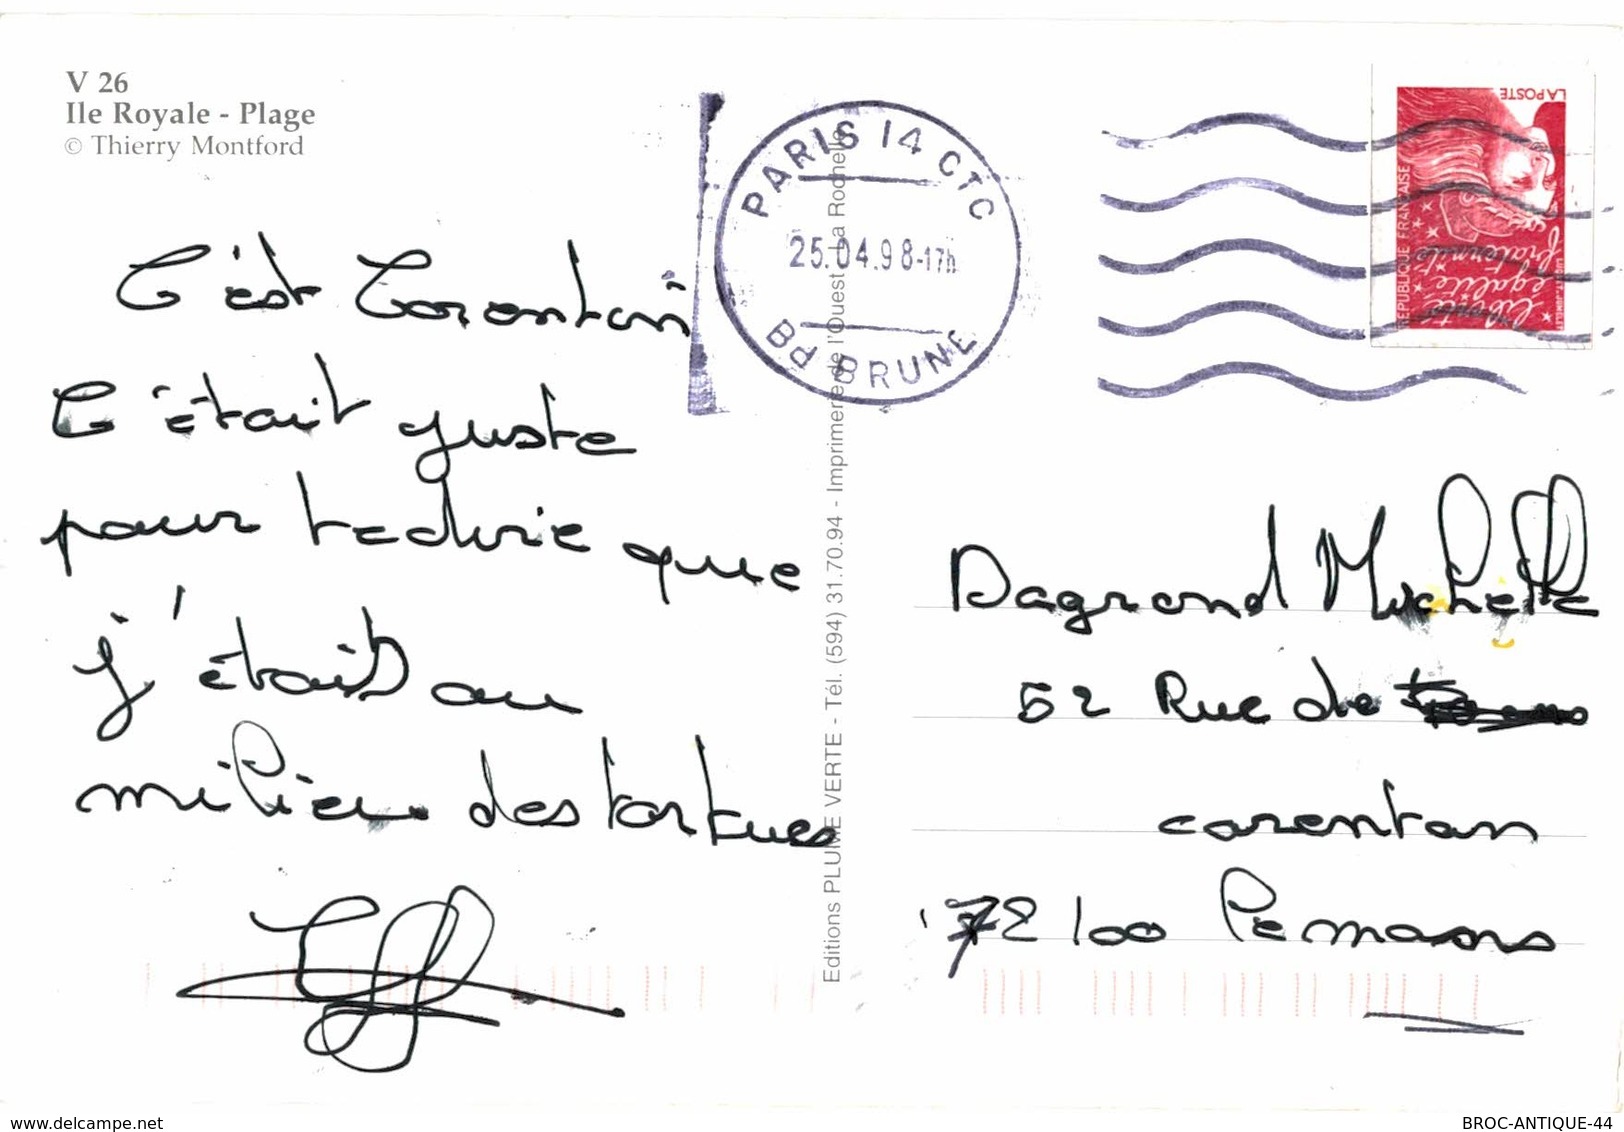 V 26
Ile Royale - Plage
© Thierry Montford
C'est Corentin
C'était juste
pour te dire que
j'étais au
milieu des tortues
PARIS 14 CTC
25.04.98-17h
Bd BRUNE
Editions PLUME VERTE - Tél. (594) 31.70.94 - Imprimerie de l'Ouest - La Rochelle
LA POSTE
REPUBLIQUE FRANÇAISE
liberté
égalité
fraternité
Dagrond Michelle
52 Rue de
corentan
72100 Le mans
www.delcampe.net
BROC-ANTIQUE-44